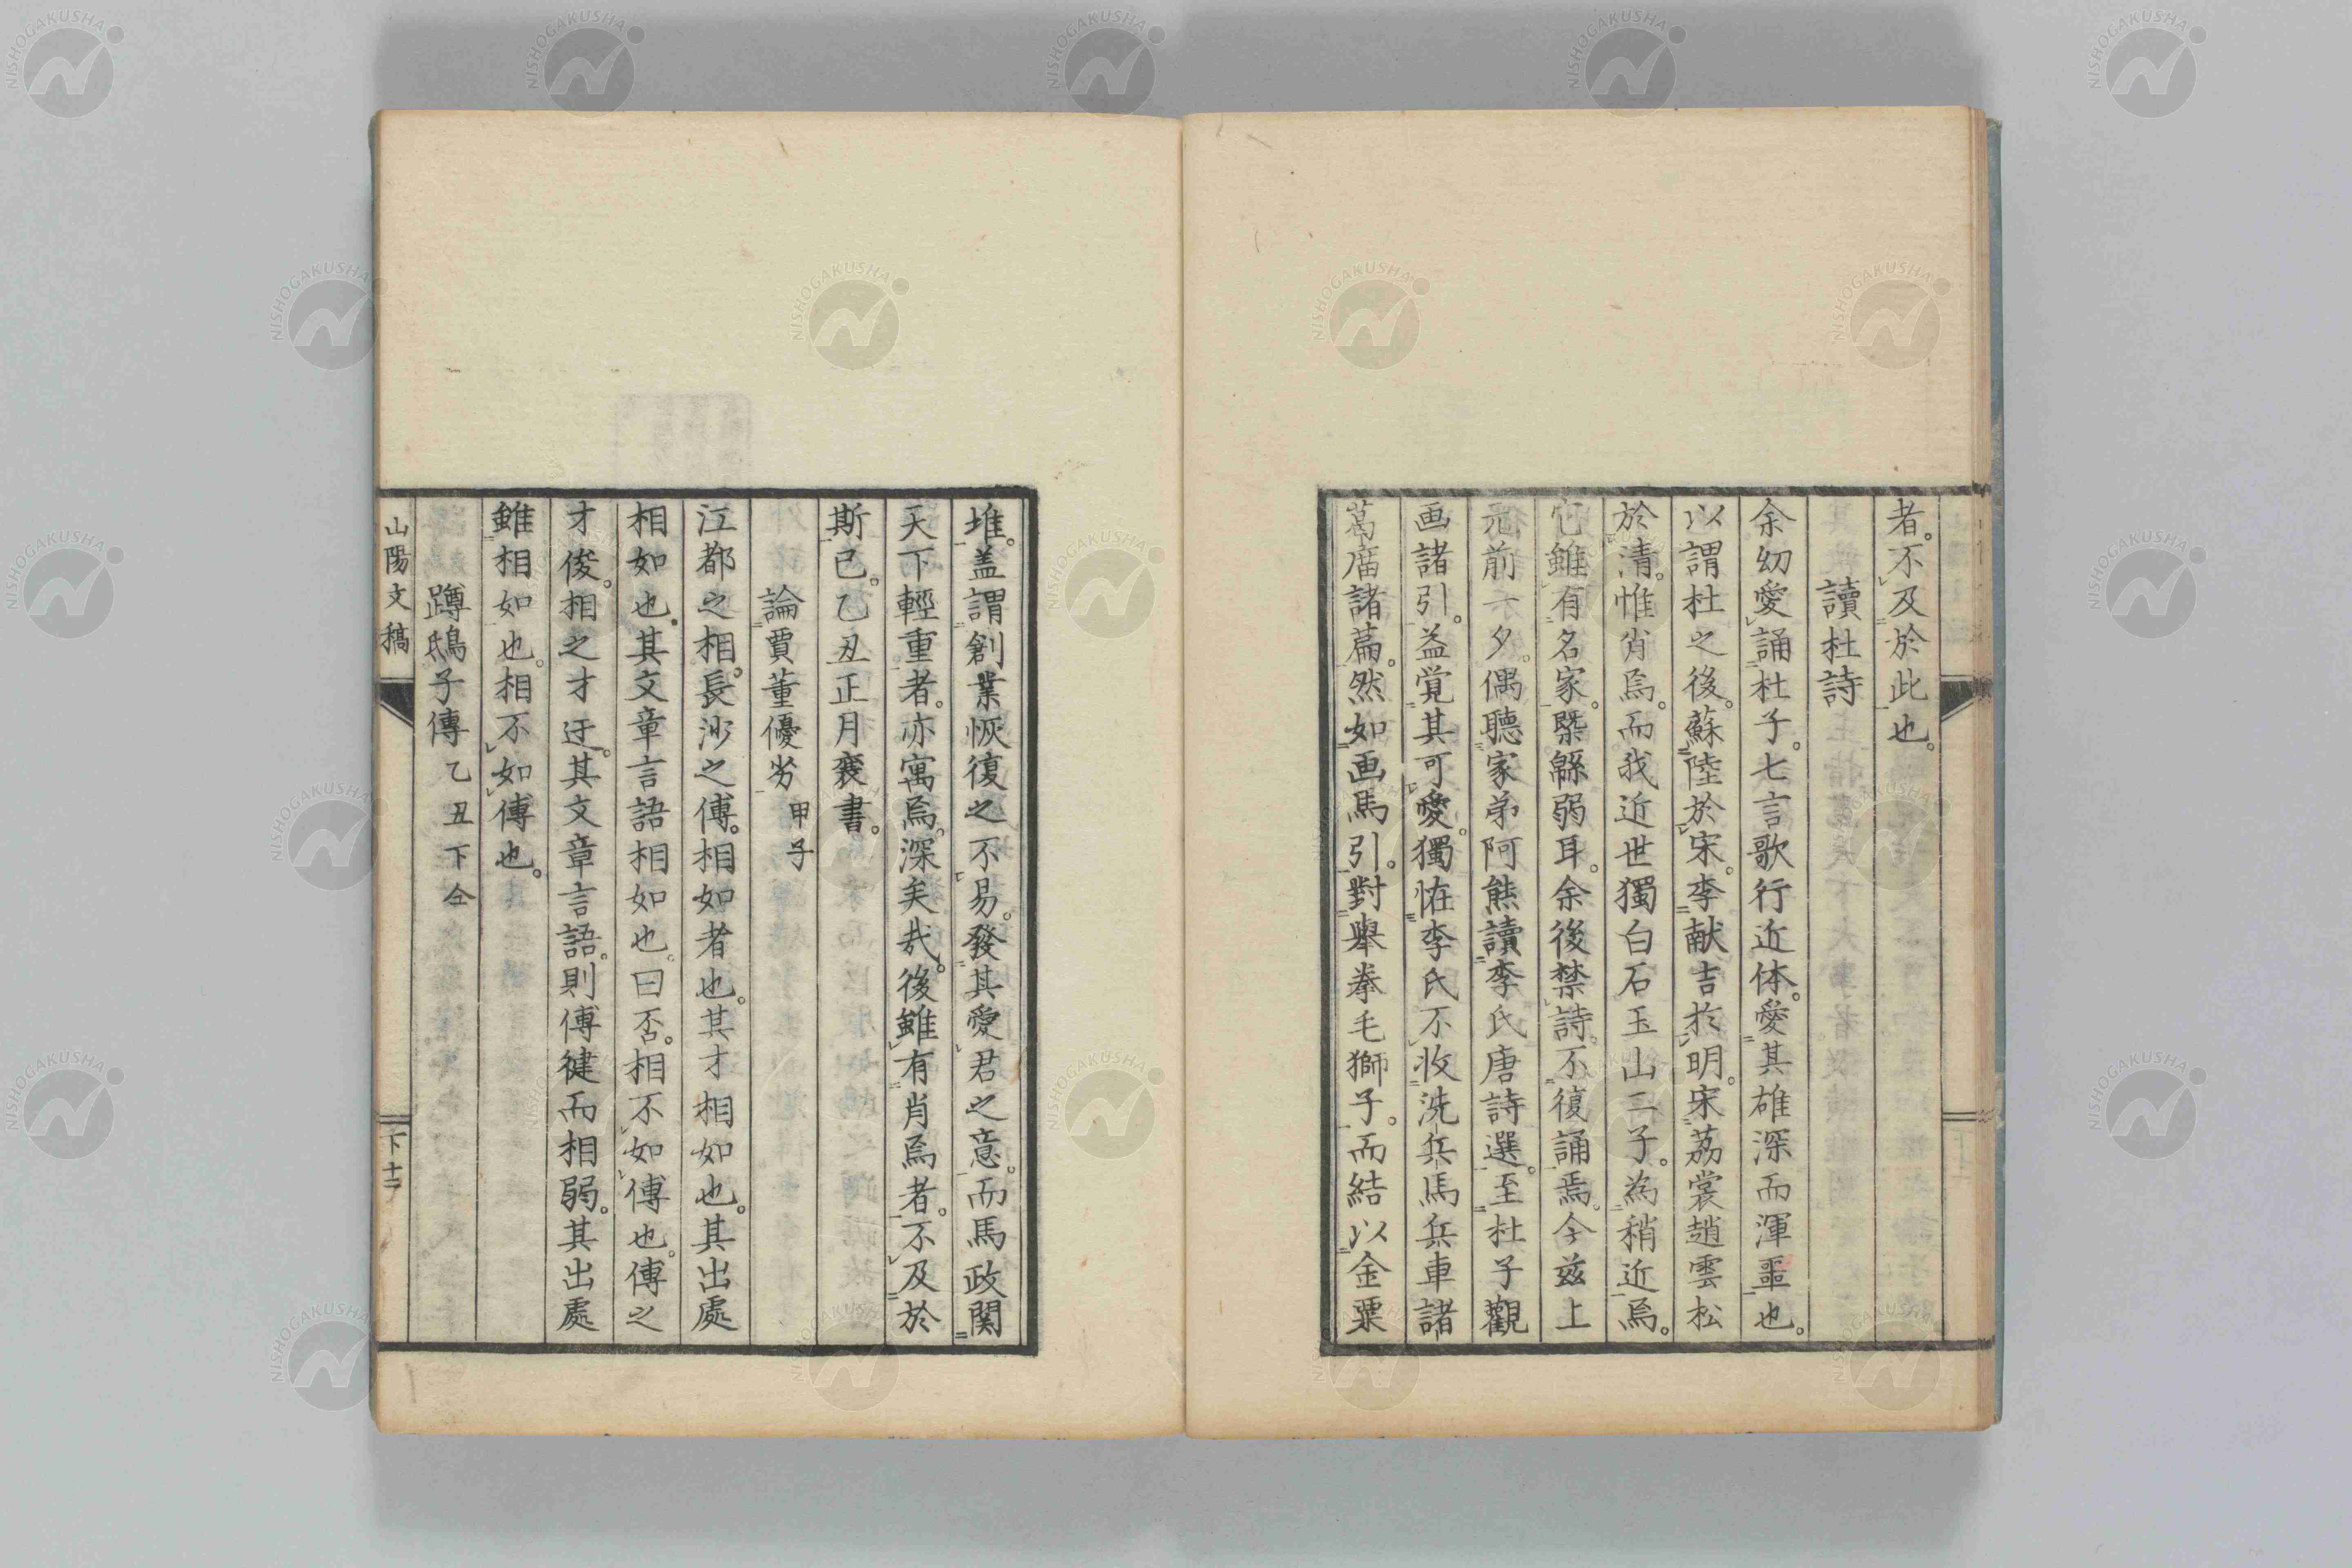 者。不及於此也。
讀杜詩
余幼愛誦杜子。七言歌行近体。愛其雄深而渾噩也。
以謂杜之後。蘇陸於宋。李献吉於明。宋荔裳趙雲松
於清。惟肖焉。而我近世獨白石玉山二子。為稍近焉。
它雖有名家。槩緜弱耳。余後禁詩。不復誦焉。今茲上
元前一夕。偶聽家弟阿熊讀李氏唐詩選。至杜子觀
画諸引。益覚其可愛。獨恠李氏不收洗兵馬兵車諸
篇。然如画馬引。對舉拳毛獅子。而結以金粟
堆。盖謂創業恢復之不易。發其愛君之意。而馬政関
天下輕重者。亦寓焉。深矣哉。後雖有肖焉者。不及於
斯已。乙丑正月襄書。
論賈董優劣 甲子
江都之相。長沙之傅。相如者也。其才相如也。其出處
相如也。其文章言語相如也。曰否。相不如傅也。傅之
才俊。相之才迂。其文章言語。則傅健而相弱。其出處
雖相如也。相不如傅也。
蹲鴟子傳 乙丑下仝
山陽文稿
下十二
NISHOGAKUSHA